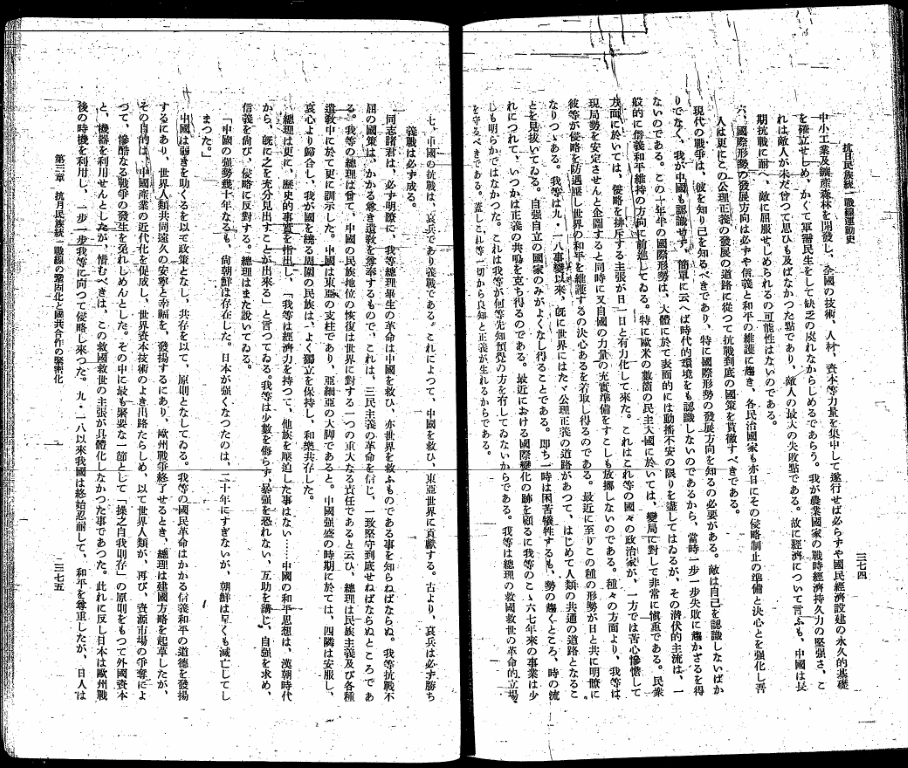 抗日民族統一戰線運動史
三七四
中小工業及鑛産農林を開發し、全國の技術、人材、資本等力量を集中して遂行せば必らずや國民經濟設建の永久的基礎
を確立せしめ、かくて軍需民生をして缺乏の虞れなからしめるであらう。我が農業國家の戰時經濟持久力の堅强さ、こ
れは敵人が未だ曾つて思ひも及ばなかつた點であり、敵人の最大の失敗點である。故に經濟について言ふも、中國は長
期抗戰に耐へ、敵に屈服せしめられるの可能性はないのである。
六、國際形勢の發展方向は必ずや信義と和平の維護に趨き、各民治國家も亦日にその侵略制止の準備と決心とを强化し吾
人は更にこの公理正義の發展の道路に從つて抗戰到底の國策を貫徹すべきである。
現代の戰爭は、彼を知り己を知るべきであり、特に國際形勢の發展方向を知るの必要がある。敵は自己を認識しないばか
りでなく、我が中國も認識せず、簡單に云へば時代的環境をも認識しないのであるから、當時一步一步失敗に趨かざるを得
ないのである。この十年來の國際形勢は、大體に於て表面的には動搖不安の限りを盡してはゐるが、その潜伏的主流は、一
般的に信義和平維持の方向に前進してゐる。特に歐米の數箇の民主大國に於いては、變局に對して非常に愼重である。民衆
方面に於いては、侵略を排斥する主張が日一日と有力化して來た。これはこれ等の國々の政治家が、一方では苦心慘憺して
現局勢を安定させんと企圖すると同時に又自國の力量の充實準備をすこしも放擲しないのである。種々の方面より、我等は
彼等が侵略を防遏壓し世界の和平を維護するの決心あるを看取し得るのである。最近に至りこの種の形勢が日と共に明瞭に
なりつゝある。我等は九・一八事變以來、旣に世界にはたゞ公理正義の道路があつて、はじめて人類の共通の道路となるこ
とを見拔いてゐる。自强自立の國家のみがよくなし得ることである。卽ち一時は困苦犧牲するも、勢の趨くところ、時の流
れにつれて、いつかは正義の共鳴を克ち得るのである。最近における國際變化の跡を顧るに我等のこの六七年來の事業は少
しも明らかではなかつた。これは我等が何等先知預覺の方を有してゐないからである。我等は總理の救國救世の革命的立場
を守るべきである。蓋しこれ等一切から良知と正義が生れるからである。
七、中國の抗戰は、哀兵であり義戰である。これによつて、中國を救ひ、東亞世界に貢獻する。古より、哀兵は必ず勝ち
義戰は必ず成る。
同志諸君は、必ず明瞭に、我等總理畢生の革命は中國を救ひ、亦世界を救ふものである事を知らねばならぬ。我等抗戰不
屈の國策は、かかる尊き遺敎を尊奉するもので、これは、三民主義の革命を信じ、一致堅守到底せねばならぬところであ
る。我等の總理は曾て、中國の民族地位の恢復は世界に對する一つの重大なる責任であると云ひ、總理は民族主義及び各種
遺敎中に於て更に調示した。中國は東亞の支柱であり、亞細亞の大脚であると。中國强盛の時期に於ては、四隣は安服し、
哀心より歸合し、我が國を繞る周圍の民族は、よく獨立を保持し、和樂共存した。
總理は更に、歷史的事實を指出し、「我等は經濟力を持つて、他族を壓迫した事はない……中國の和平思想は、漢朝時代
から、旣に之を充分見出すことが出來る」と言つてゐる。我等は少數を侮らず、暴强を恐れない、互助を講じ、自强を求め、
信義を尙び、侵略に反對する。總理はまた說いてゐる。
「中國の强勢幾千年なるも、尙朝鮮は存在した。日本が强くなつたのは、二十年にすぎないが、朝鮮は早くも滅亡してし
まつた。」
中國は弱きを助くるを以て政策となし、共存を以て、原則となしてゐる。我等の國民革命はかかる信義和平の道德を發揚
するにあり、世界人類共同遠久の安寧と幸福を、發揚するにあり、歐州戰爭終了せるとき、總理は建國方略を起草したが、
その目的は、中國產業の近代化を促成し、世界資本技術のよき出路たらしめ、以て世界人類が、再び、資源市場の爭奪によ
つて、慘酷なる戰爭の發生を免れしめんとした。その中に最も緊要な一節として「操之自我則存」の原則をもつて外國資本
と、機器を利用せんとしたが、惜むべきは、この救國救世の主張が具體化しなかつた事であつた。此れに反し日本は歐州戰
後の時機を利用し、一步一步我等に向つて侵略し來つた。九・一八以來我國は終始忍耐して、和平を尊重したが、日人は
第三章 抗日民族統一戰線の鞏固化と國共合作の緊密化
三七五